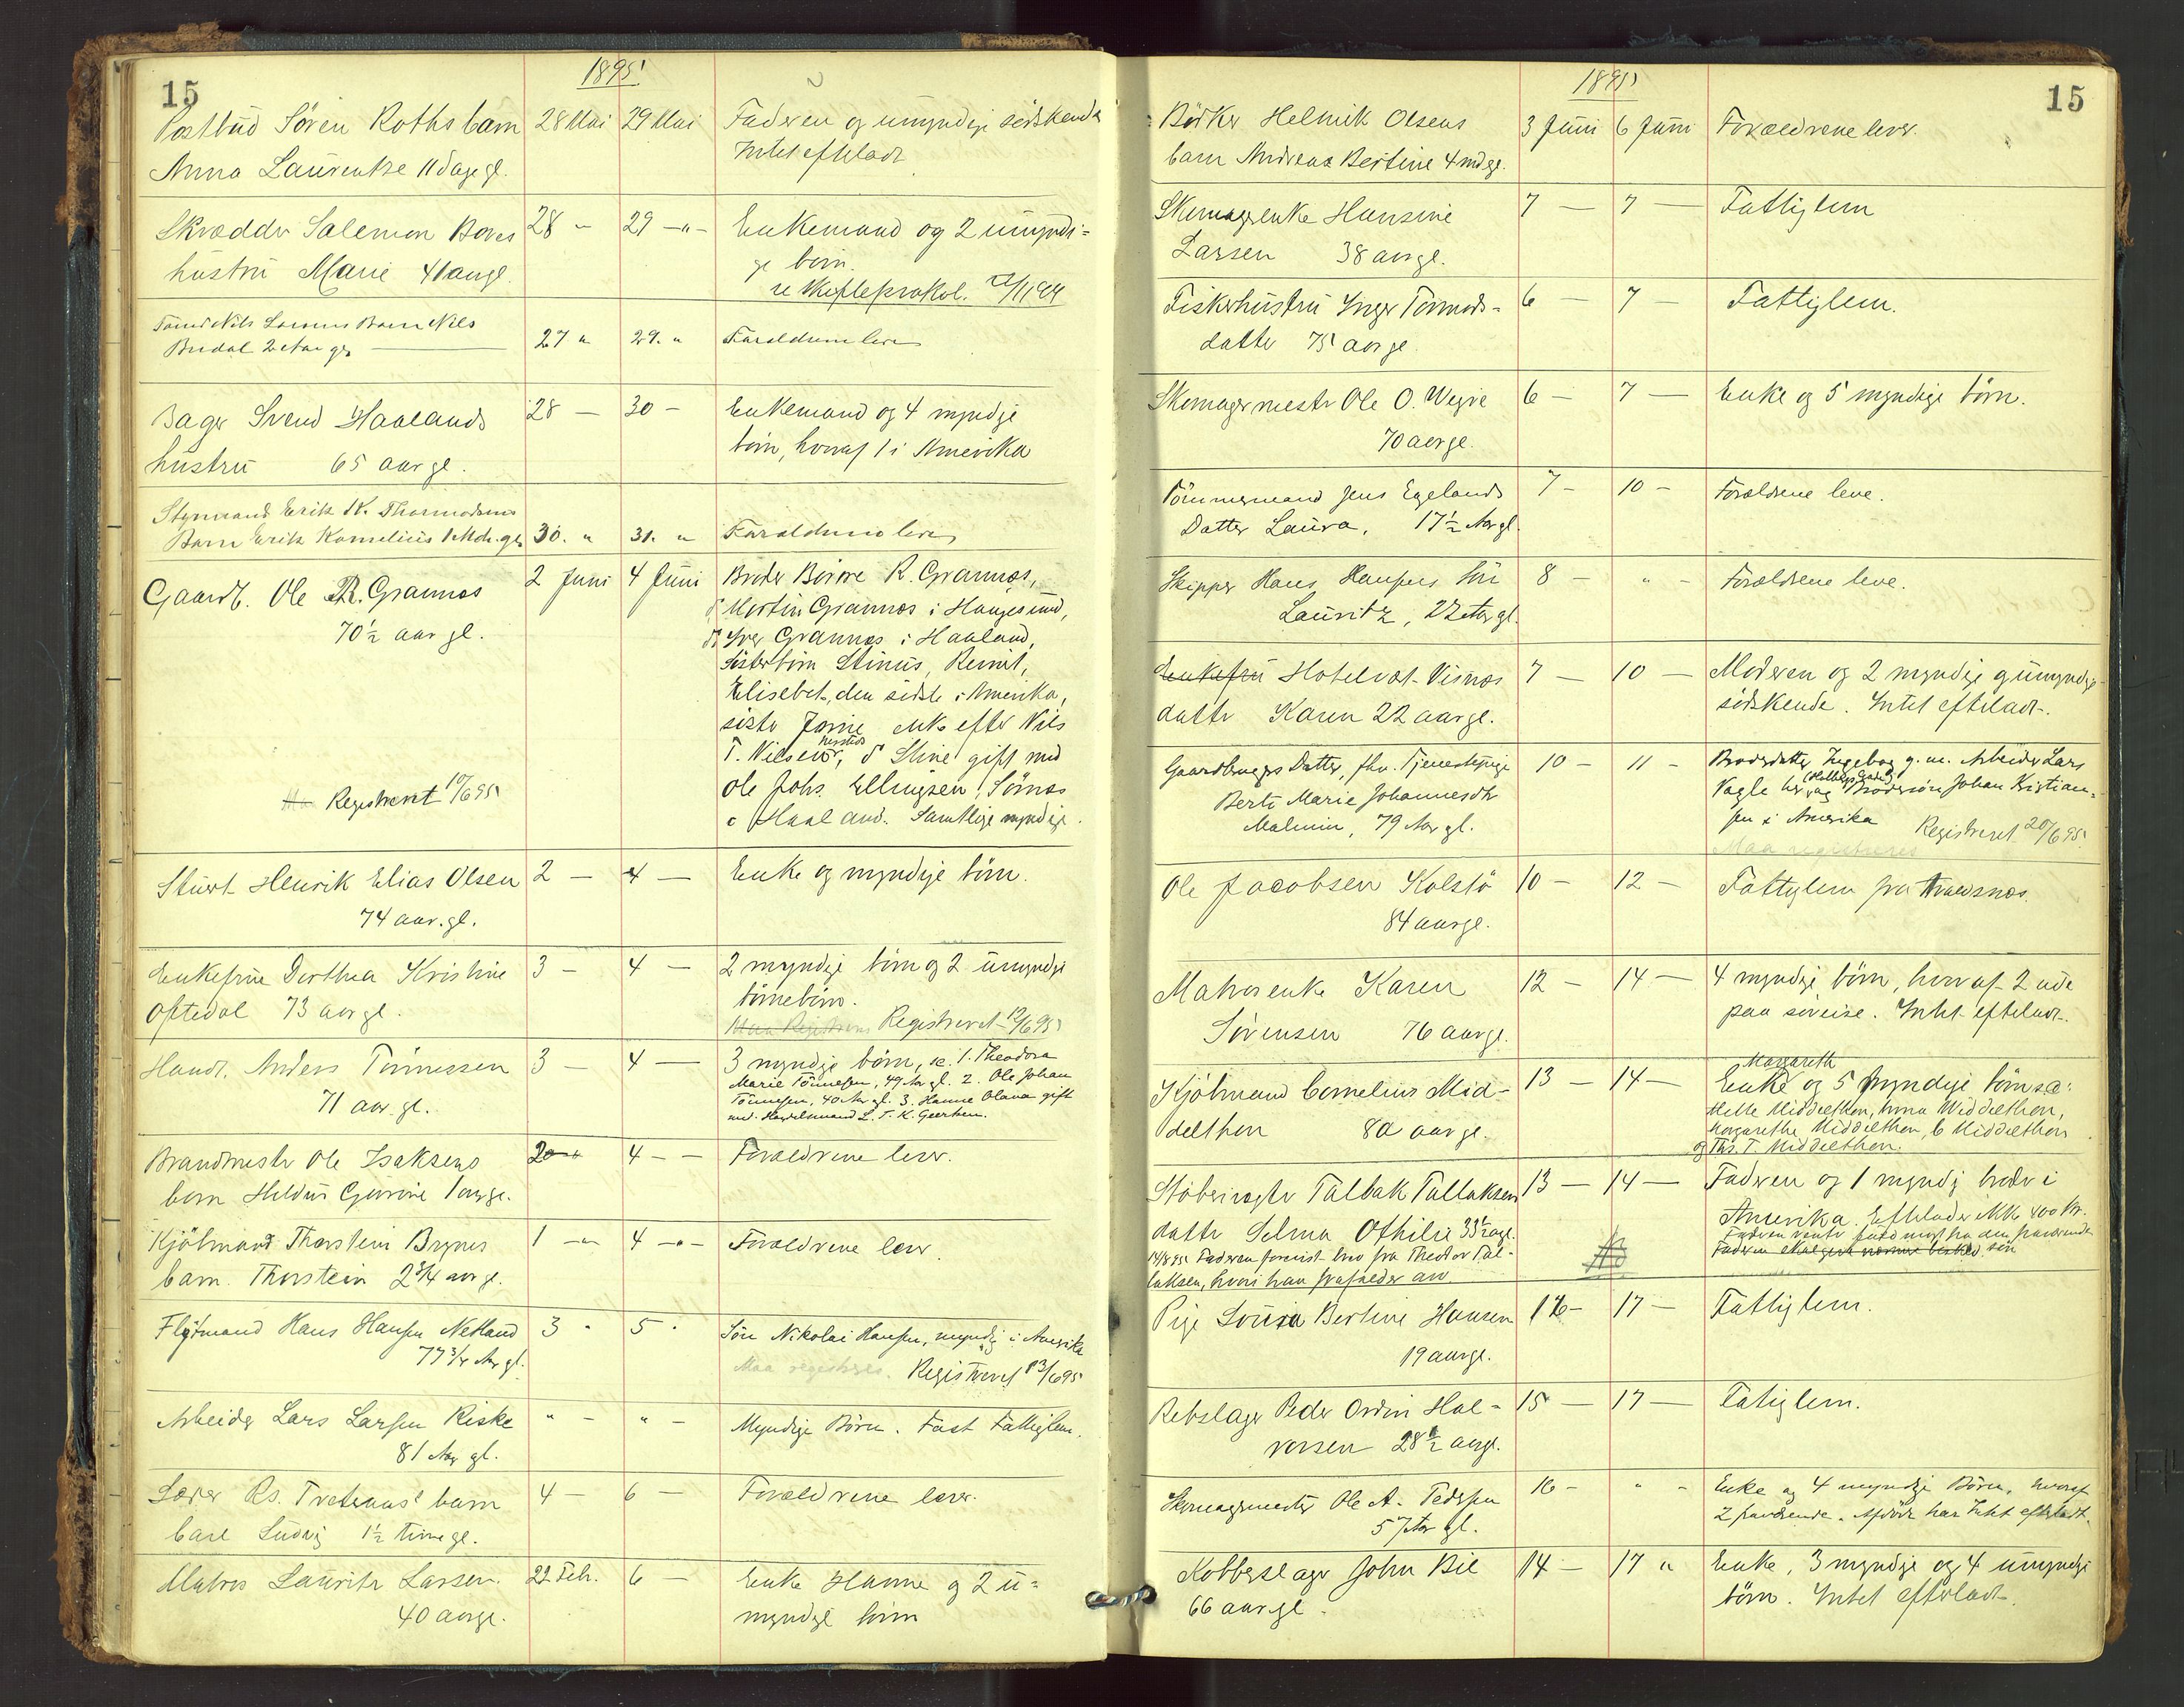 15
1895
Postbud Sören Roths barn 28 Mai 29 Mai Faderen og umyndige södskende
Anna Laurentse 11 dage gl. Intet efterladt
Skrædder Salemon Bores 28 " 29 " Enkemand og 2 umyndi=
hustru Marie 41 aar gl. ge börn.
se skifteprotokol.
Nils
Bredal 2 Aar gl. 27 " 29. " Forældrene lever
Bager Svend Haalands 28 — 30 — Enkemand og 4 myndige
hustru 65 aar gl. börn, hvoraf 1 i Amerika
Styrmand Erik K. Thormodsens
Barn Erik Kornelius 1 Md. gl. 30. " 31. " Forældrene lever
Gaardb. Ole R. Grannes 2 Juni 4 Juni Broder Börre R. Grannes,
70½ aar gl. Martin Grannes i Haugesund,
Iver Grannes i Haaland,
Sösterbörn Stinus, Reinert,
Elisebet, den sidste i Amerika,
söster Jorine enke efter Nils
T. Nilsen, Stine gift med
Ole Johs. Ellingsen Sömos
Registreret 10/6 95 i Haaland. Samtlige myndige.
Stuert Henrik Elias Olsen 2 — 4 — Enke og myndige börn.
74 aar gl.
Enkefrue Dorthea Kristine 3 — 4 — 2 myndige börn og 2 umyndige
Oftedal 73 aar gl. börnebörn.
Maa Registreres Registreret 12/6 95
Handl. Anders Tönnessen 3 — 4 — 3 myndige börn, sc. 1. Theodora
71 aar gl. Marie Tönnesen, 49 Aar gl. 2. Ole Johan
Tönnesen, 40 Aar gl. 3. Hanne Olava gift
med Handelsmand L. T. K. Geertsen.
Brandmester Ole Isaksens 2 4 — — Forældrene lever.
barn Gurine 1 aar gl.
Kjöbmand Thorstein Brynes 1 — 4 — Forældrene lever.
barn Thorstein 2¾ aar gl.
Hans Hansen Netland 3 " 5 " Sön Nikolai Hansen, myndig i Amerika
77¾ Aar gl. Maa registreres. Registreret 13/6 95
Arbeider Lars Larsen Riske " — " — Myndige Börn. Fast Fattiglem.
81 Aar gl.
Lærer Rs. Tveteraas' barn 4 — 6 — Forældrene lever.
Carl Ludvig 1½ time gl.
Matros Lauritz Larsen 22 Feb. 6 — Enke Hanne og 2 u=
40 aar gl. myndige börn
15
1895
Bödker Helmik Olsens 3 Juni 6 Juni Forældrene lever.
barn Andreas Bertine 4 mdr gl.
Skomagerenke Hansine 7 — 7 — Fattiglem
Larsen 38 aar gl.
Fiskerhustru Inger Tormods= 6 — 7 — Fattiglem.
datter 75 aar gl.
Skomagermester Ole O. Weyre 6 — 7 — Enke og 5 myndige börn.
70 aar gl.
Tömmermand Jens Egelands 7 — 10 — Forældrene leve.
Datter Laura, 17½ Aar gl.
Skipper Hans Hansens Sön 8 — " — Forældrene leve.
Lauritz, 22 Aar gl.
Enkefru Hotelvært Visnæs 7 — 10 — Moderen og 2 myndige og umyndige
datter Karen 22 aar gl. södskende. Intet efterladt.
Gaardbrugers Datter, fhv. Tjenestepige 10 — 11 — Brodersdatter Ingeborg g. m. Arbeider Lars
Berte Marie Johannesdtr Vagle her og Brodersön Johan Kristian=
Malmin, 79 Aar gl. sen i Amerika Registreret 20/6 95.
Maa registreres
Ole Jacobsen Kolstö 10 — 12 — Fattiglem fra
84 aar gl.
Matrosenke Karen 12 — 14 — 4 myndige börn, hvoraf 2 ude
Sörensen 76 aar gl. paa söreise. Intet efterladt.
Margareth
Kjöbmand Cornelius Mid- 13 — 14 — Enke og 5 myndige börn sc:
delthon 80 aar gl. Mette Middelthon, Anna Middelthon,
Margarethe Middelthon, C Middelthon
og Ths. T. Middelthon.
Tallak Tallaksens 13 — 14 — Faderen og 1 myndig broder i
datter Selma Othilie 33½ aar gl. Amerika. Efterlader Kr. 400
14/8 95 Faderen fra Theodor Tal-
laksen, hvori han frafalder arv
Pige Louisa Bertine Hansen 16 — 17 — Fattiglem.
19 aar gl.
Rebslager Peder Ordin Hal= 15 — 17 — Fattiglem.
vorsen 28½ aar gl.
Skomagermester Ole A. Pedersen 16 — " " Enke og 4 myndige Börn, hvoraf
57 Aar gl. 2 fraværende. Afdöde har Intet efterladt.
Kobberslager John Bie 14 — 17 " Enke, 3 myndige og 4 umyndige
66 aar gl. börn. Intet efterladt.